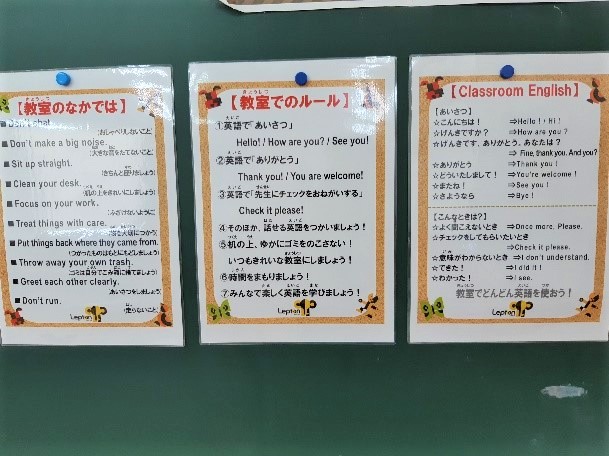 【教室のなかでは】
Don't chat.
(おしゃべりしないこと)
Don't make a big noise.
(大きな音をたてないこと)
Sit up straight.
(きちんと座りましょう)
Clean your desk.
(机の上をきれいにしましょう)
Focus on your work.
(ふざけないように)
Treat things with care.
Put things back where they came from.
(つかったものはもとにもどしましょう)
Throw away your own trash.
(ゴミは自分でごみ箱に捨てましょう)
Greet each other clearly.
(あいさつをしましょう)
Don't run.
(走らないこと)
Lepton
【教室でのルール】
①英語で「あいさつ」
Hello! / How are you? / See you!
②英語で「ありがとう」
Thank you! / You are welcome!
③英語で「先生にチェックをおねがいする」
Check it please!
④そのほか、話せる英語をつかいましょう!
⑤机の上、ゆかにゴミをのこさない!
いつもきれいな教室にしましょう!
⑥時間をまもりましょう!
⑦みんなで楽しく英語を学びましょう!
Lepton
【Classroom English】
【あいさつ】
☆こんにちは! ⇒Hello! / Hi!
☆げんきですか? ⇒How are you?
☆げんきです、ありがとう。あなたは?
⇒ Fine, thank you. And you?
☆ありがとう ⇒Thank you!
☆どういたしまして! ⇒You're welcome!
☆またね! ⇒See you!
☆さようなら ⇒Bye!
【こんなときは?】
☆よく聞こえないとき ⇒Once more, Please.
☆チェックをしてもらいたいとき
⇒Check it please.
☆意味がわからないとき ⇒I don't understand.
☆できた! ⇒I did it!
☆わかった! ⇒I see.
教室でどんどん英語を使おう!
Lepton